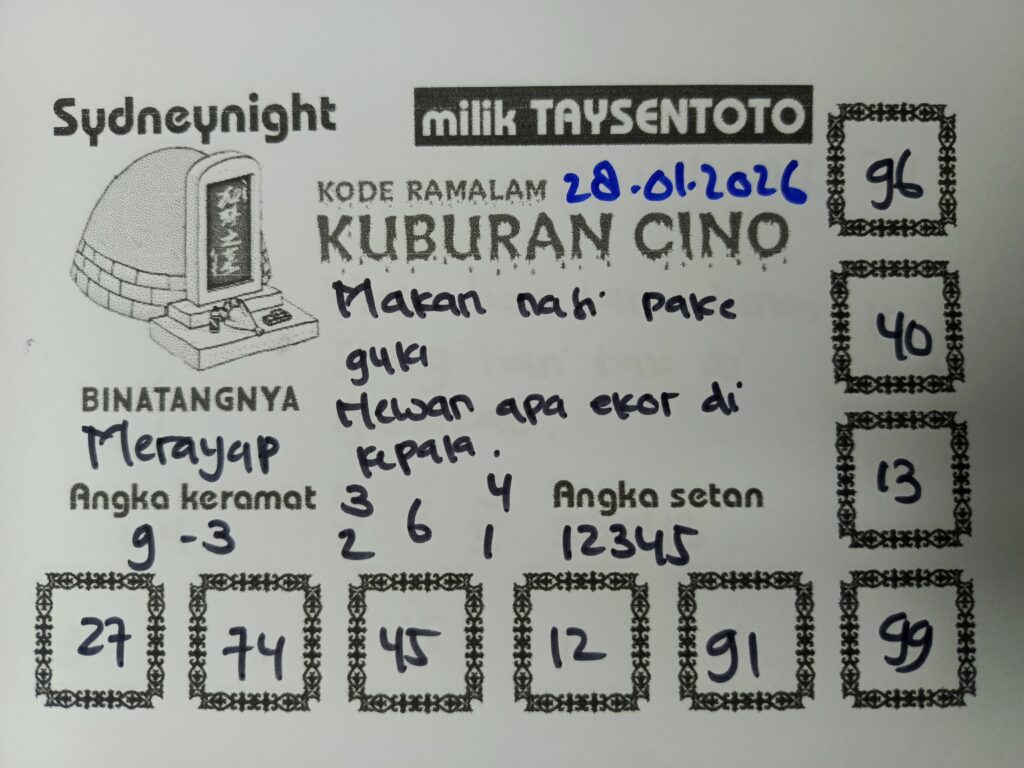 Sydneynight
milik TAYSENTOTO
KODE RAMALAM 28.01.2026
KUBURAN CINO
Makan nasi pake
gula
Hewan apa ekor di
kepala.
BINATANGNYA
Merayap
Angka keramat
9 - 3
3 4
6
2 1
Angka setan
12345
96
40
13
27 74 45 12 91 99